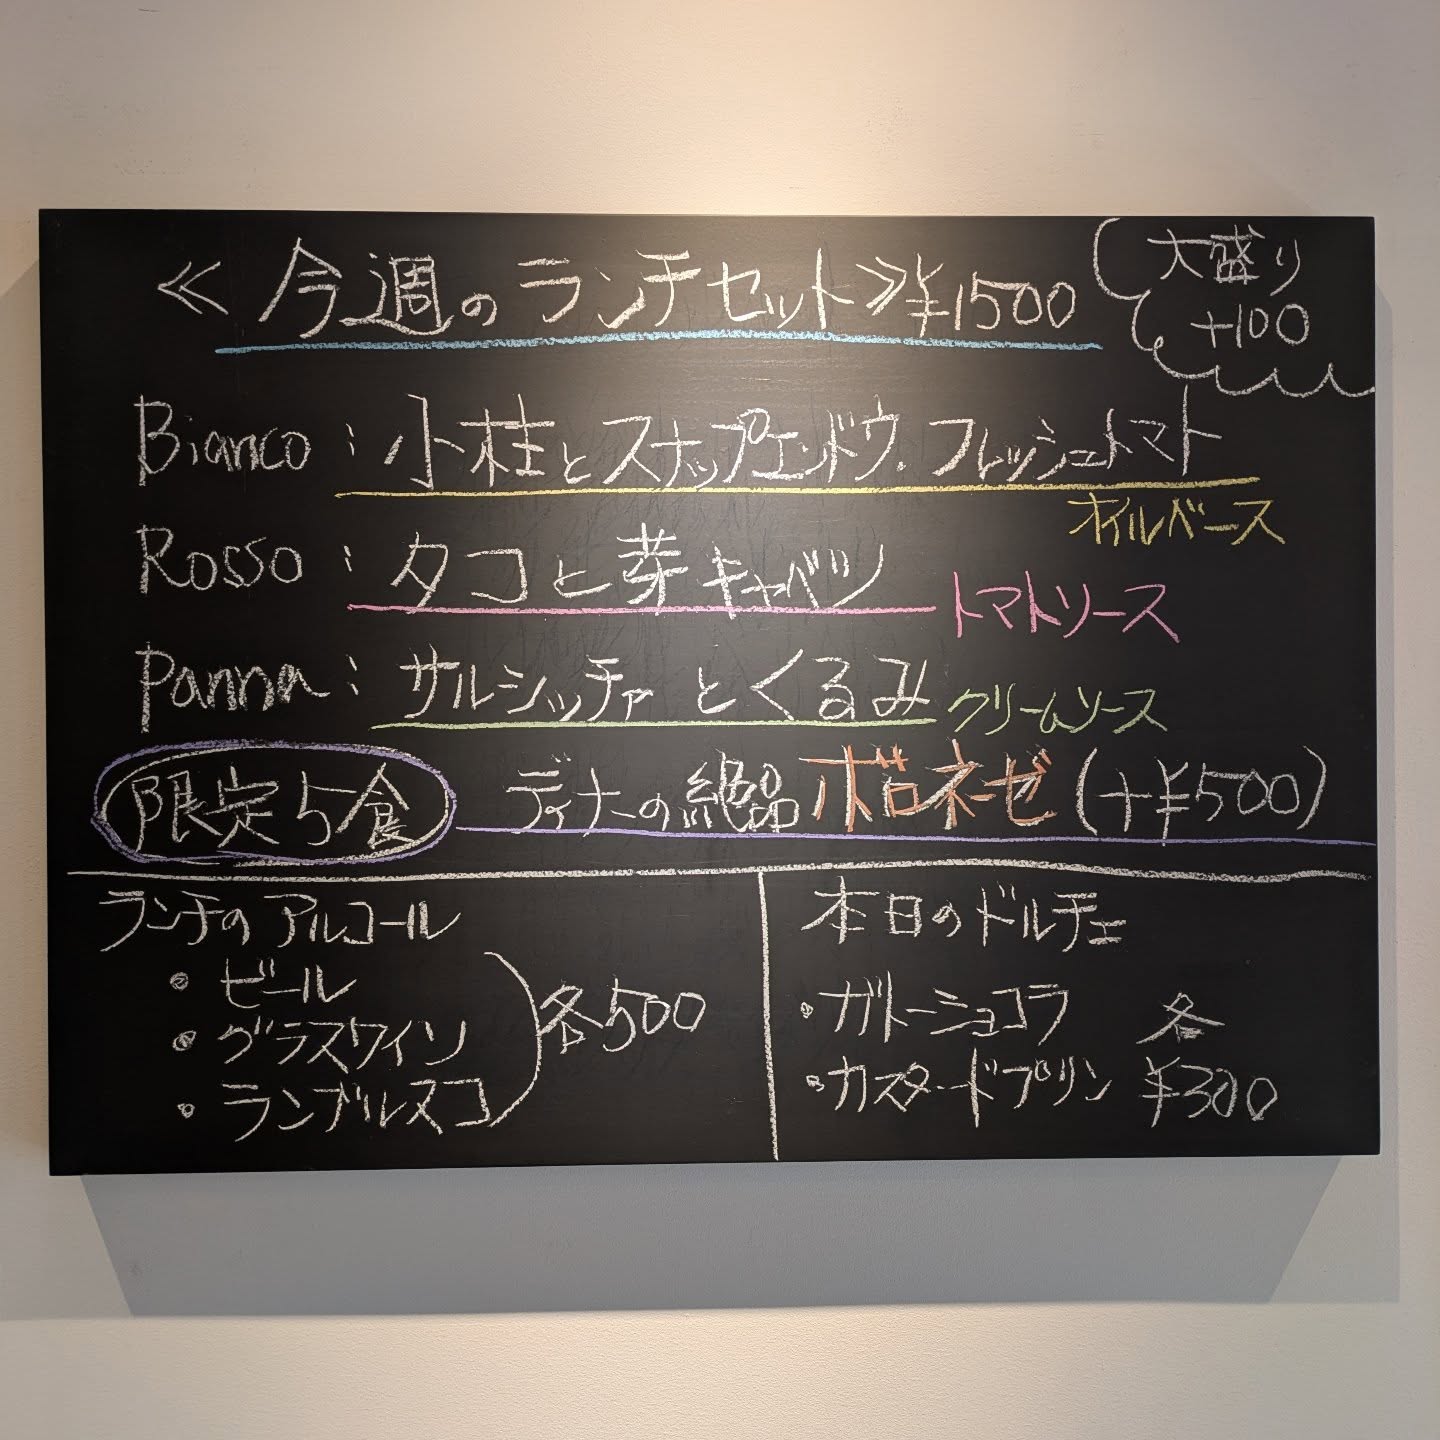 ≪今週のランチセット≫¥1500
大盛り
+100
Bianco：小柱とスナップエンドウ・フレッシュトマト
オイルベース
Rosso：タコと芽キャベツ
トマトソース
Panna：サルシッチャとくるみ
クリームソース
限定5食 ディナーの絶品ボロネーゼ(+¥500)
ランチのアルコール
・ビール
・グラスワイン
・ランブルスコ
各500
本日のドルチェ
・ガトーショコラ
・カスタードプリン
各
¥300